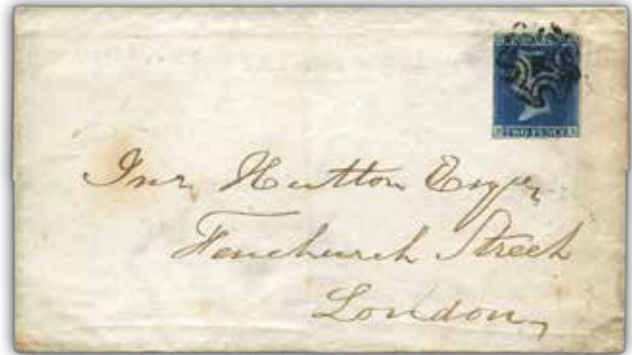 TWO PENCE
Jnr. Hutton Esqr.
Fenchurch Street
London,